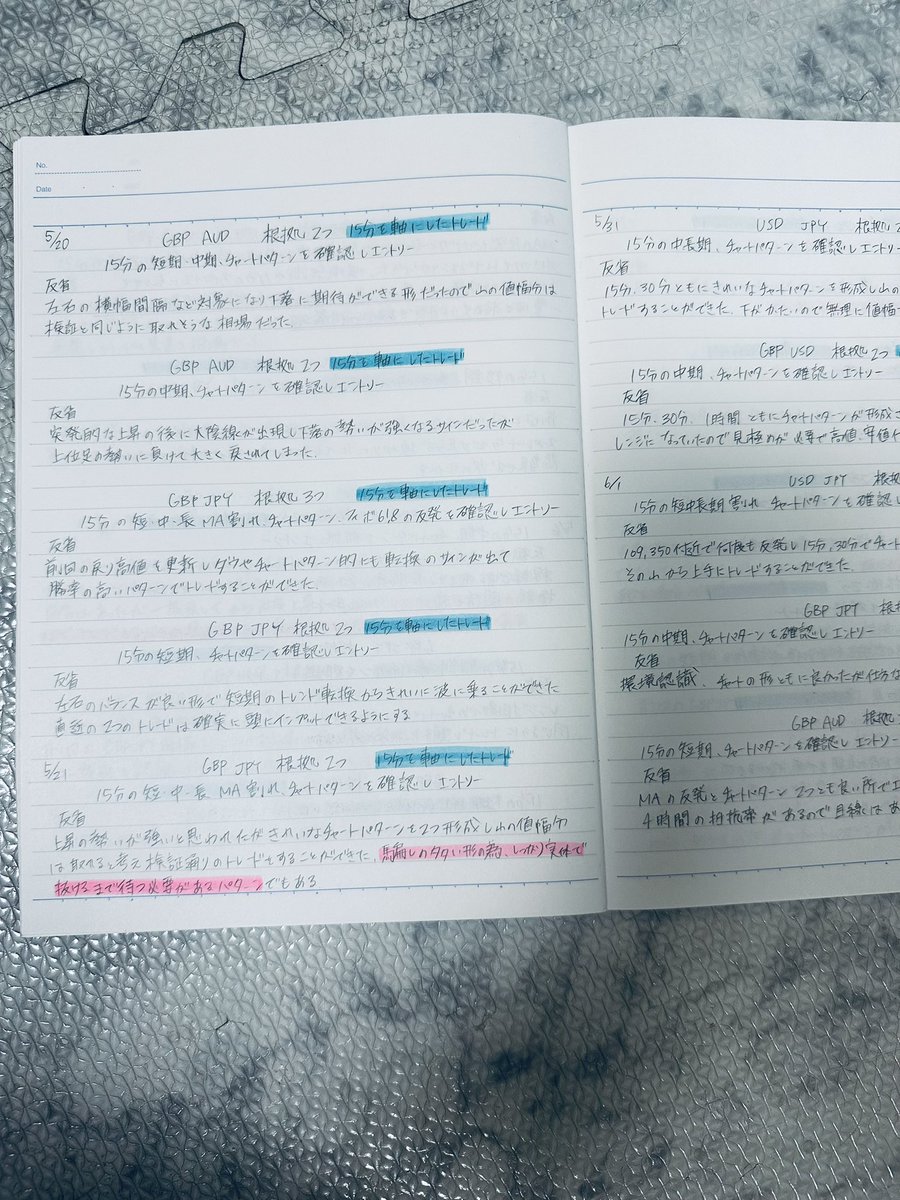 No.
Date
5/20 GBP AUD 根拠2つ 15分を軸にしたトレード
15分の短期・中期、チャートパターンを確認しエントリー
反省
左右の横幅間隔など対象になり下落に期待ができる形だったので山の値幅分は
検証と同じように取れそうな相場だった。
GBP AUD 根拠2つ 15分を軸にしたトレード
15分の中期、チャートパターンを確認しエントリー
反省
突発的な上昇の後に大陰線が出現し下落の勢いが強くなるサインだったが
上位足の勢いに負けて大きく戻されてしまった。
GBP JPY 根拠3つ 15分を軸にしたトレード
15分の短・中・長MA割れ、チャートパターン、フィボ61.8の反発を確認しエントリー
反省
前回の戻り高値を更新しダウやチャートパターン的にも転換のサインが出て
勝率の高いパターンでトレードすることができた。
GBP JPY 根拠2つ 15分を軸にしたトレード
15分の短期、チャートパターンを確認しエントリー
反省
左右のバランスが良い形で短期のトレンド転換からきれいに波に乗ることができた
直近の2つのトレードは確実に頭にインプットできるようにする
5/21 GBP JPY 根拠2つ 15分を軸にしたトレード
15分の短・中・長MA割れ、チャートパターンを確認しエントリー
反省
上昇の勢いが強いと思われたがきれいなチャートパターンを2つ形成し山の値幅分
は取れると考え検証通りのトレードをすることができた。騙しの多い形の為、しっかり実体で
抜けるまで待つ必要があるパターンでもある
5/31 USD JPY 根拠
15分の中長期、チャートパターンを確認しエントリー
反省
15分、30分ともにきれいなチャートパターンを形成し山の
トレードすることができた。下がかたいので無理に値幅
GBP USD 根拠2つ
15分の中期、チャートパターンを確認しエントリー
反省
15分、30分、1時間ともにチャートパターンが形成さ
レンジになっていたので見極めが必要で高値、安値
6/1 USD JPY
15分の短中長期割れ、チャートパターンを確認し
反省
109,350付近で何度も反発し15分、30分でチャート
その山から上手にトレードすることができた。
GBP JPY 根
15分の中期、チャートパターンを確認しエントリー
反省
環境認識、チャートの形ともに良かったが
GBP AUD 根拠
15分の短期、チャートパターンを確認しエントリー
反省
MAの反発とチャートパターン2つとも良い所でエ
4時間の抵抗帯があるので目線はあ